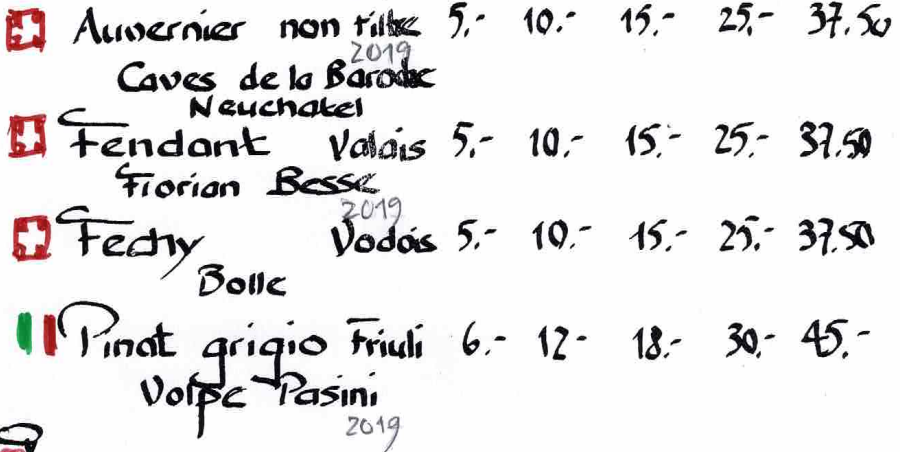 Auvernier non filtre 5,- 10.- 15.- 25.- 37.50
2019
Caves de la Baroche
Neuchatel
Fendant Valais 5,- 10.- 15.- 25.- 37.50
Florian Besse
2019
Fechy Vodois 5.- 10.- 15.- 25.- 37.50
Bolle
Pinot grigio Friuli 6.- 12- 18.- 30.- 45.-
Volpe Pasini
2019